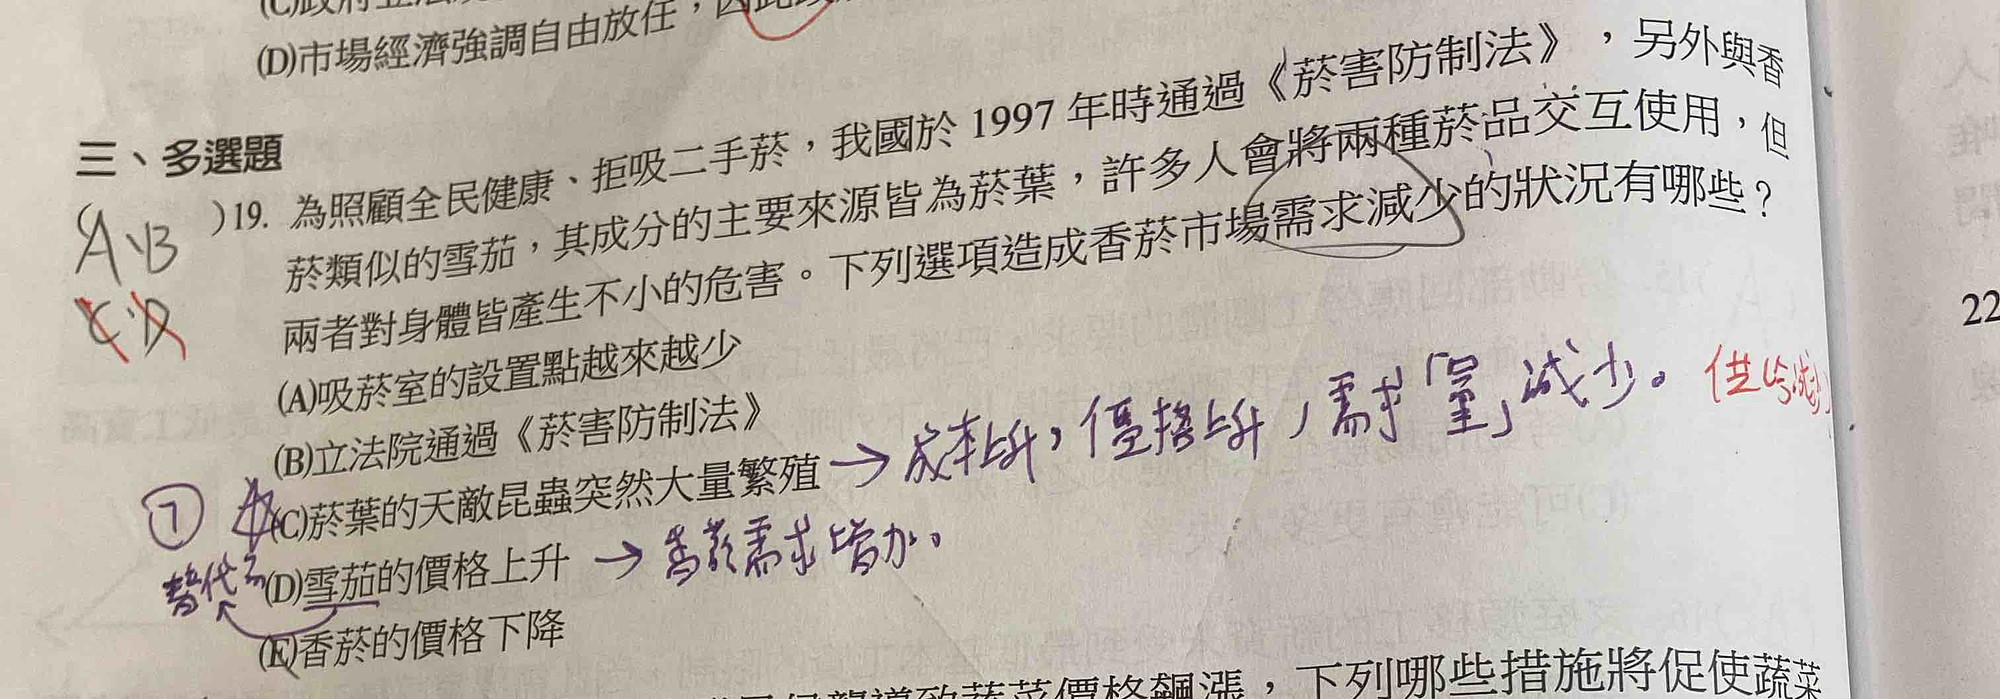 (D)市場經濟強調自由放任，因此政
三、多選題
(A、B C、D)19. 為照顧全民健康、拒吸二手菸，我國於 1997 年時通過《菸害防制法》，另外與香
菸類似的雪茄，其成分的主要來源皆為菸葉，許多人會將兩種菸品交互使用，但
兩者對身體皆產生不小的危害。下列選項造成香菸市場需求減少的狀況有哪些？
(A)吸菸室的設置點越來越少
(B)立法院通過《菸害防制法》
(C)菸葉的天敵昆蟲突然大量繁殖 → 成本上升，價格上升，需求「量」減少。供給減少
(D)雪茄的價格上升 → 香菸需求增加。
替代
(E)香菸的價格下降
蔬菜價格飆漲，下列哪些措施將促使蔬菜
22